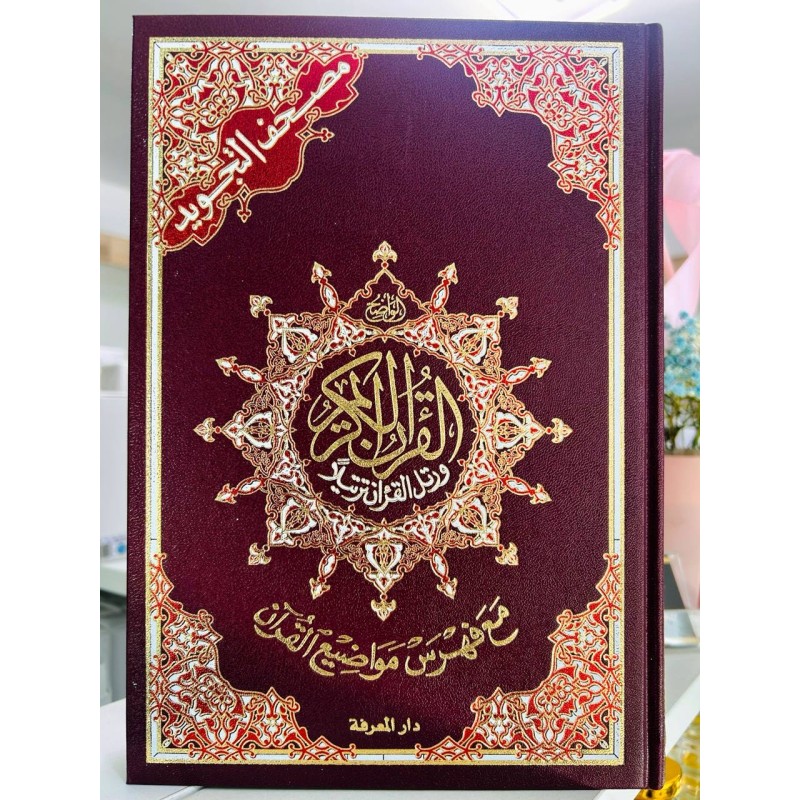 مصحف التجويد
الواضح
القرآن الكريم
ورتل القرءان ترتيلاً
مَعَ فِهْرِسْ مَوَاضِيْعِ القُرْآن
دار المعرفة